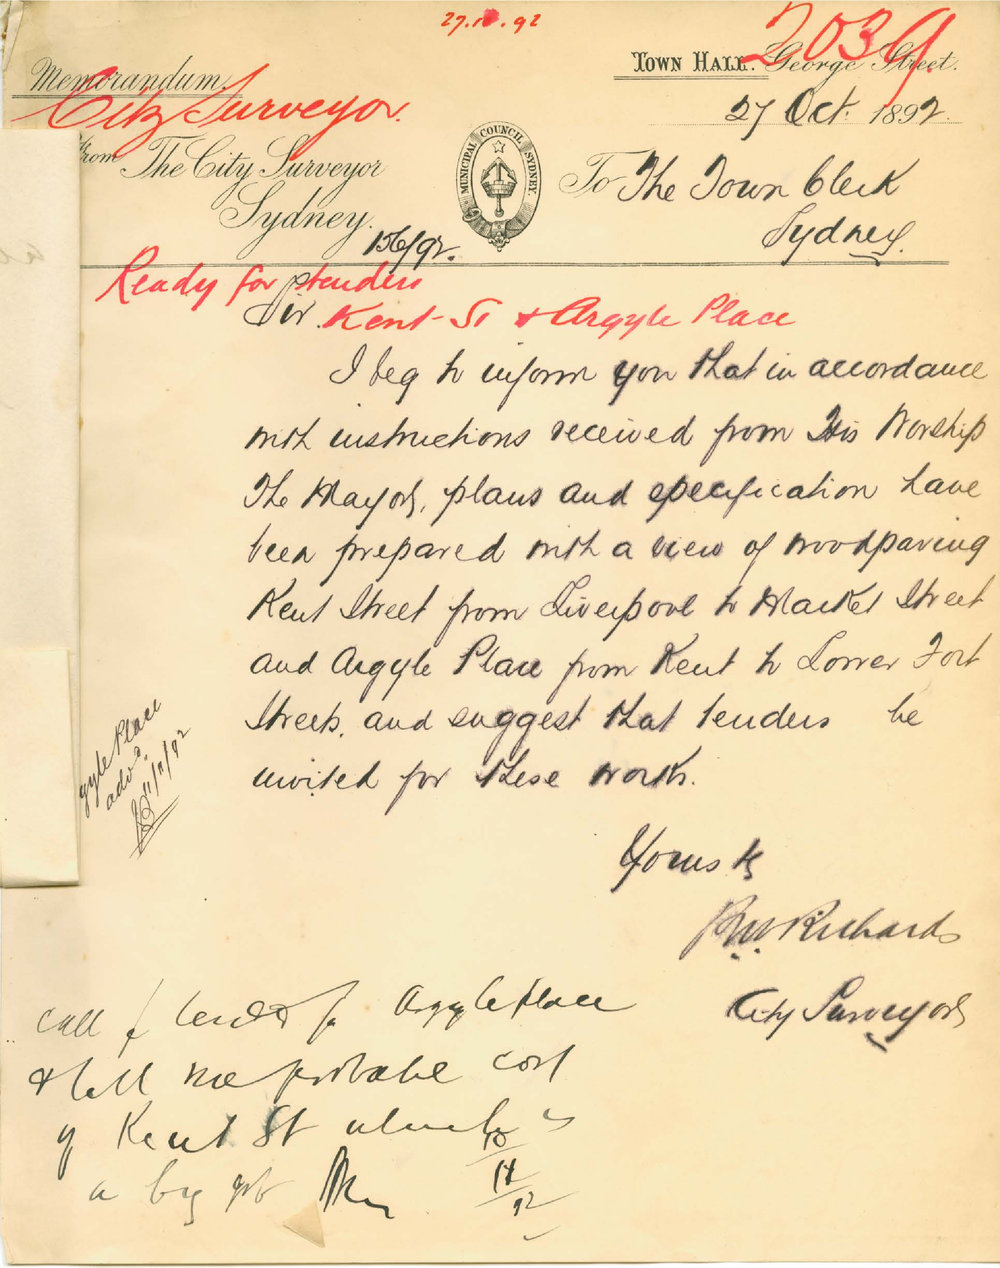 27.10.92
2039
Memorandum
City Surveyor.
Town Hall. George Street.
27 Oct. 1892.
From The City Surveyor
Sydney.
MUNICIPAL COUNCIL SYDNEY.
To The Town Clerk
Sydney.
156/92.
Ready for tenders
Sir.
Kent St & Argyle Place
I beg to inform you that in accordance
with instructions received from His Worship
The Mayor, plans and specification have
been prepared with a view of woodpaving
Kent Street from Liverpool to Market Street
and Argyle Place from Kent to Lower Fort
Streets, and suggest that tenders be
invited for these works.
gyle Place
advd.
11/11/92
Yours ty
RW Richards
City Surveyor
Call for tenders for Argyle place
& tell me probable cost
of Kent St which is
a big job
10/11/92